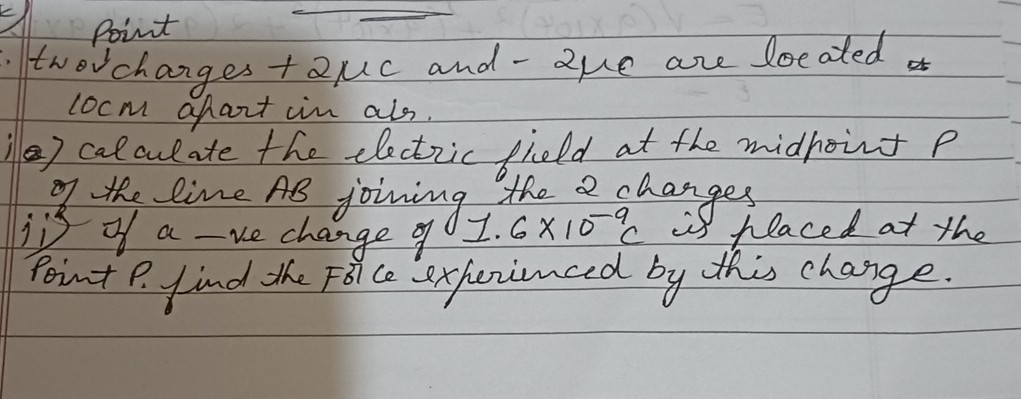 Point
two charges + 2μc and - 2μc are located
10cm apart in air.
i) calculate the electric field at the midpoint P
of the line AB joining the 2 charges
ii) If a -ve charge of 1.6 X 10⁻⁹c is placed at the
Point P. find the Force experienced by this charge.